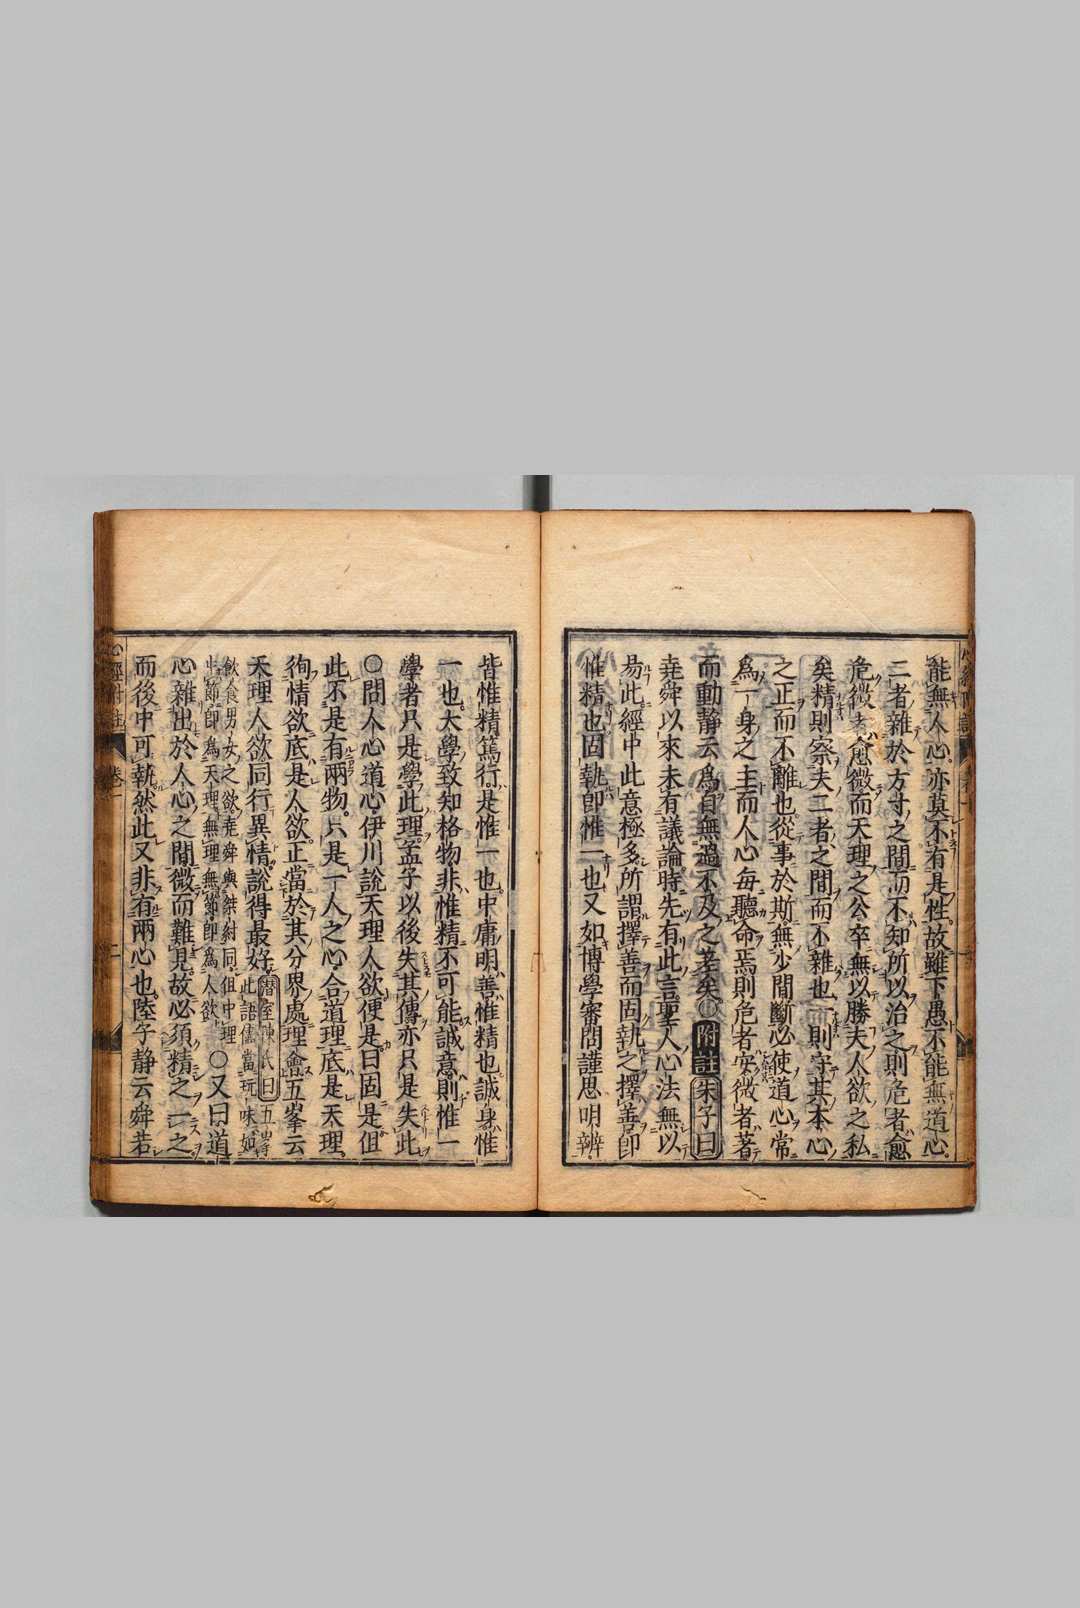 能無人心亦莫不有是性故雖下愚不能無道心
二者雜於方寸之間而不知所以治之則危者愈
危微者愈微而天理之公卒無以勝夫人欲之私
矣精則察夫二者之間而不雜也一則守其本心
之正而不離也從事於斯無少間斷必使道心常
為一身之主而人心每聽命焉則危者安微者著
而動靜云為自無過不及之差矣○附註朱子曰
堯舜以來未有議論時先有此言聖人心法無以
易此經中此意極多所謂擇善而固執之擇善即
惟精也固執即惟一也又如博學審問謹思明辨
皆惟精篤行是惟一也中庸明善惟精也誠身惟
一也大學致知格物非惟精不可能誠意則惟一
學者只是學此理孟子以後失其傳亦只是失此
○問人心道心伊川說天理人欲便是曰固是但
此不是有兩物只是一人之心合道理底是天理
徇情欲底是人欲正當於其分界處理會五峯云
天理人欲同行異情說得最好潛室陳氏曰五峯此語儘當玩味如
飲食男女之欲堯舜與桀紂同但中理中節即為天理無理無節即為人欲○又曰道
心雜出於人心之間微而難見故必須精之一之
而後中可執然此又非有兩心也陸子靜云舜若
心經附註 卷一